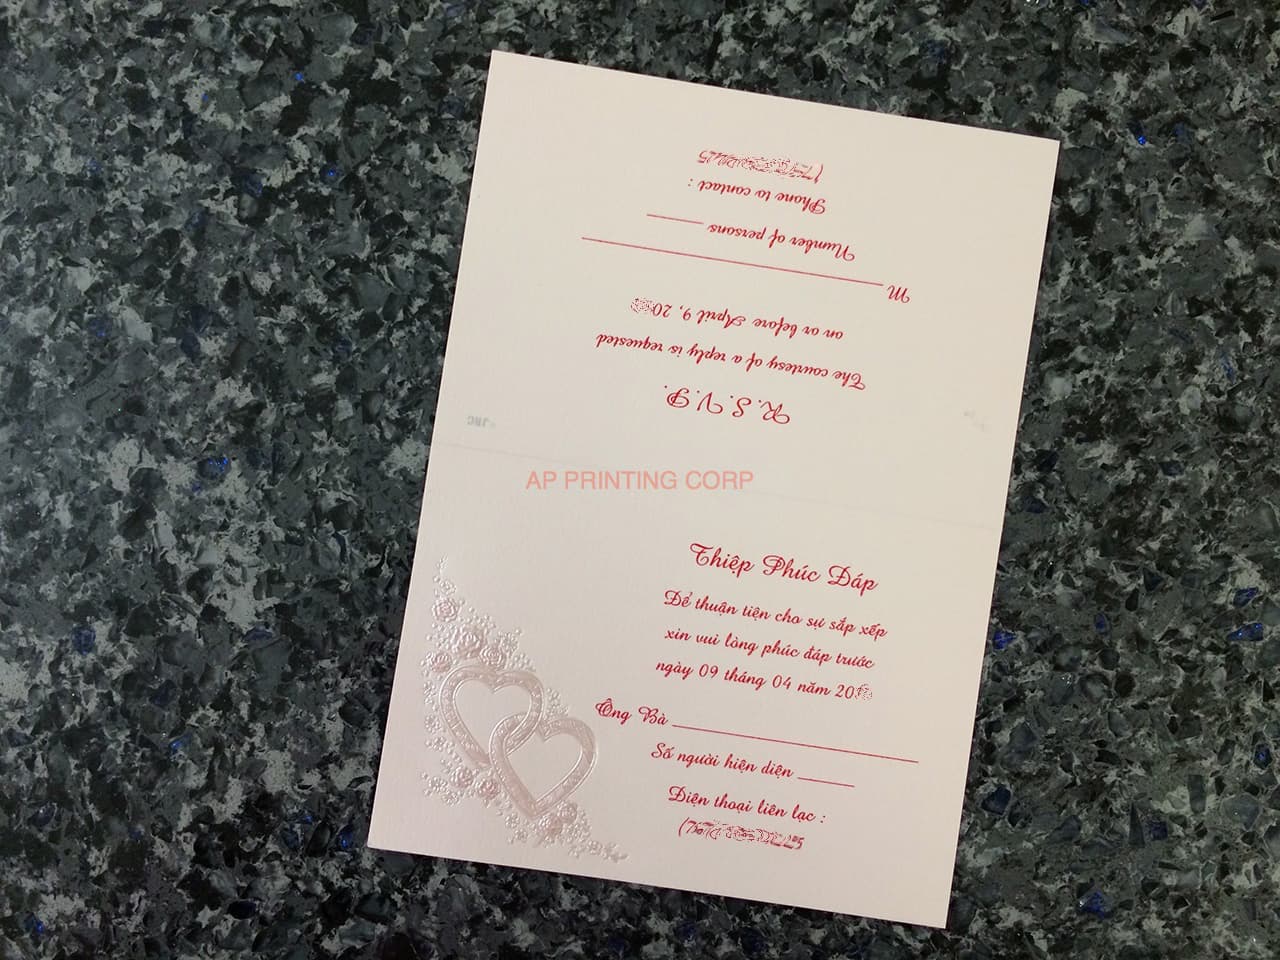 R.S.V.P.
The courtesy of a reply is requested
on or before April 9, 20
M
Number of persons
Phone to contact :
AP PRINTING CORP
Thiệp Phúc Đáp
Để thuận tiện cho sự sắp xếp
xin vui lòng phúc đáp trước
ngày 09 tháng 04 năm 20
Ông Bà
Số người hiện diện
Điện thoại liên lạc :